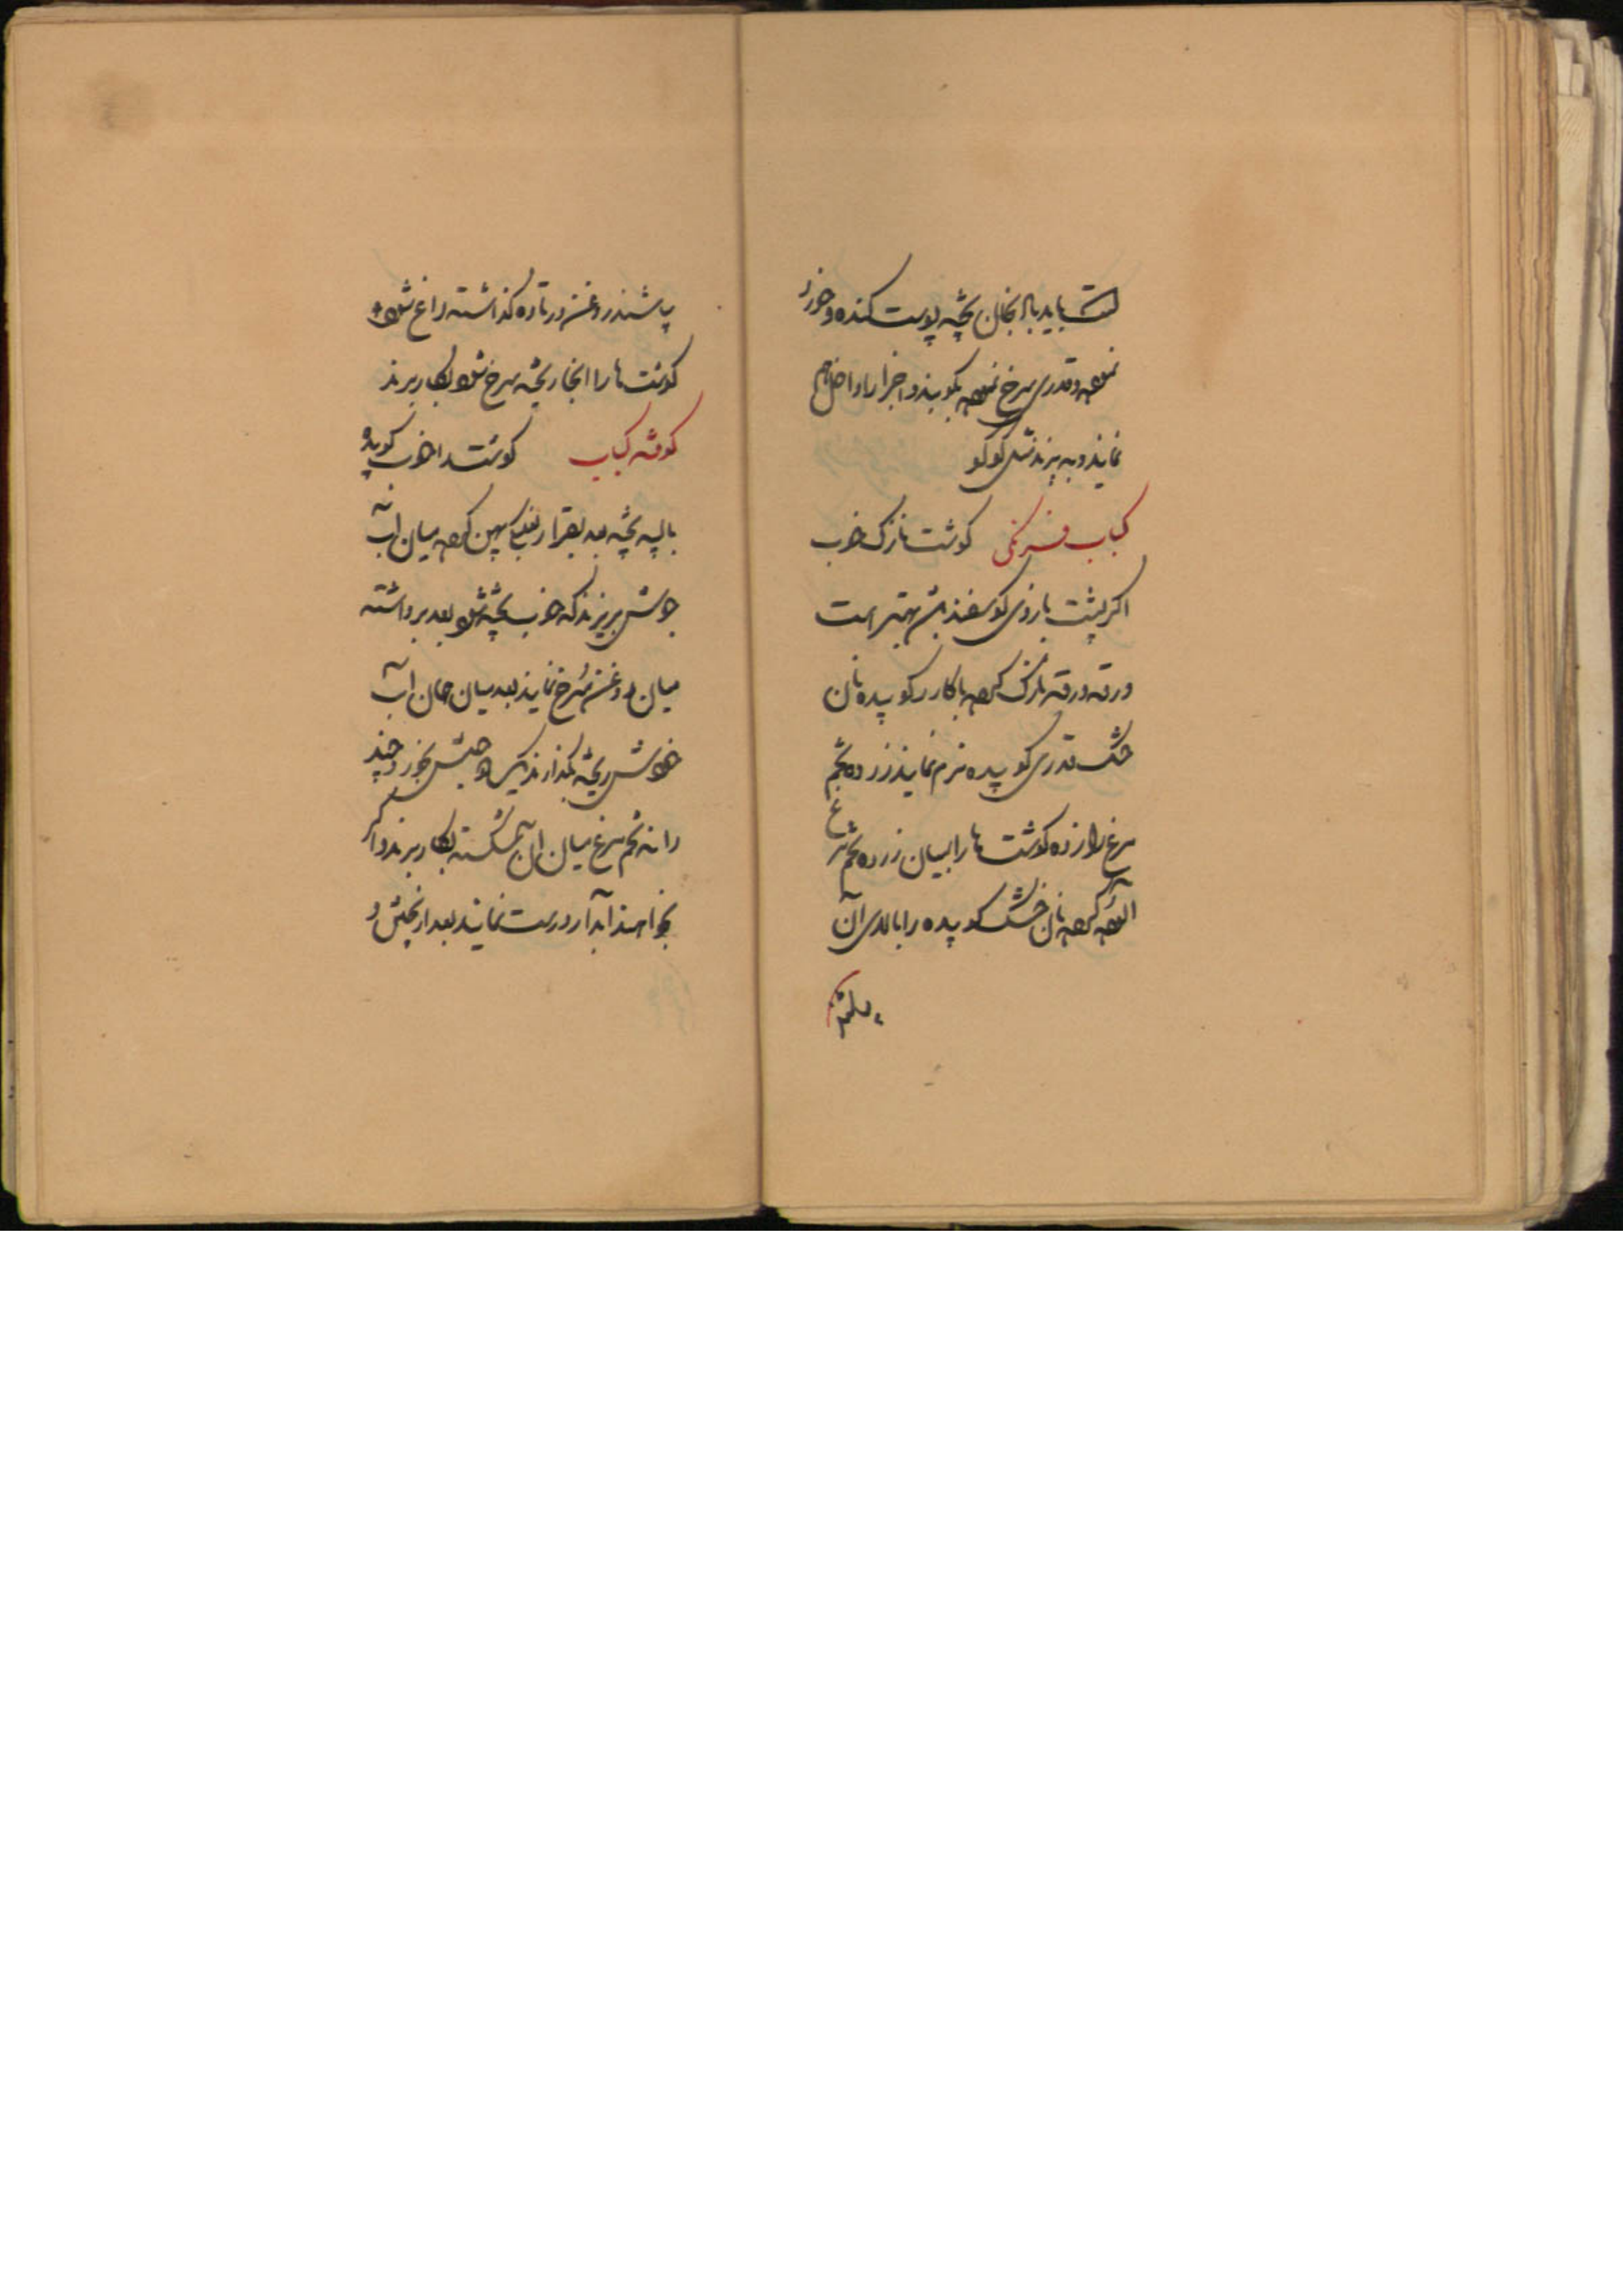 است باید بادنجان پخته پوست کنده و خورد
نموده و قدری سرخ نموده بکوبند و اجزا را داخل هم
نمایند و به پزند مثل کوکو
کباب فرنکی کوشت نازک خوب
اکر پشت بازوی کوسفند باشد بهتر است
ورقه ورقه نازک کرده با کارد کوبیده نان
خشک قدری کوبیده نرم نمایند زرده تخم
مرغ را زده کوشت ها را بمیان زرده تخم مرغ
آلوده کرده نان خشک کوبیده را بالای آن
بپاشند
پاشند روغن در تاوه کذاشته داغ شود
کوشت ها را انجا ریخته سرخ شود بکار برند
کوفته کباب کوشت را خوب کوبیده
با پیه پخته بعد بقدر نعلبکی پهن کرده میان آب
جوش بریزند که خوب پخته شود بعد برداشته
میان روغن سرخ نمایند بعد میان همان آب
خودش ریخته بکذارند یکی دو جوش بخورد چند
دانه تخم مرغ میان آن شکسته بکار برند و اکر
بخواهند آبدار درست نمایند بعد از پختن و